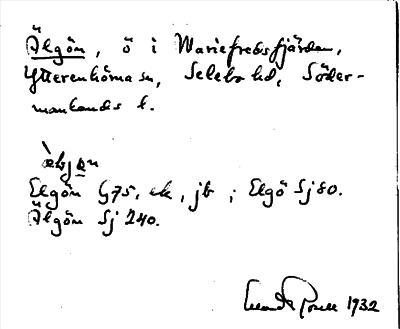 Älgön, ö i Mariefredsfjärden,
Ytterenhörna sn, Selebo hd, Söder-
manlands l.
Elgön G75, ek, jb ; Elgö Sj 80.
Älgön Sj 240.
1932